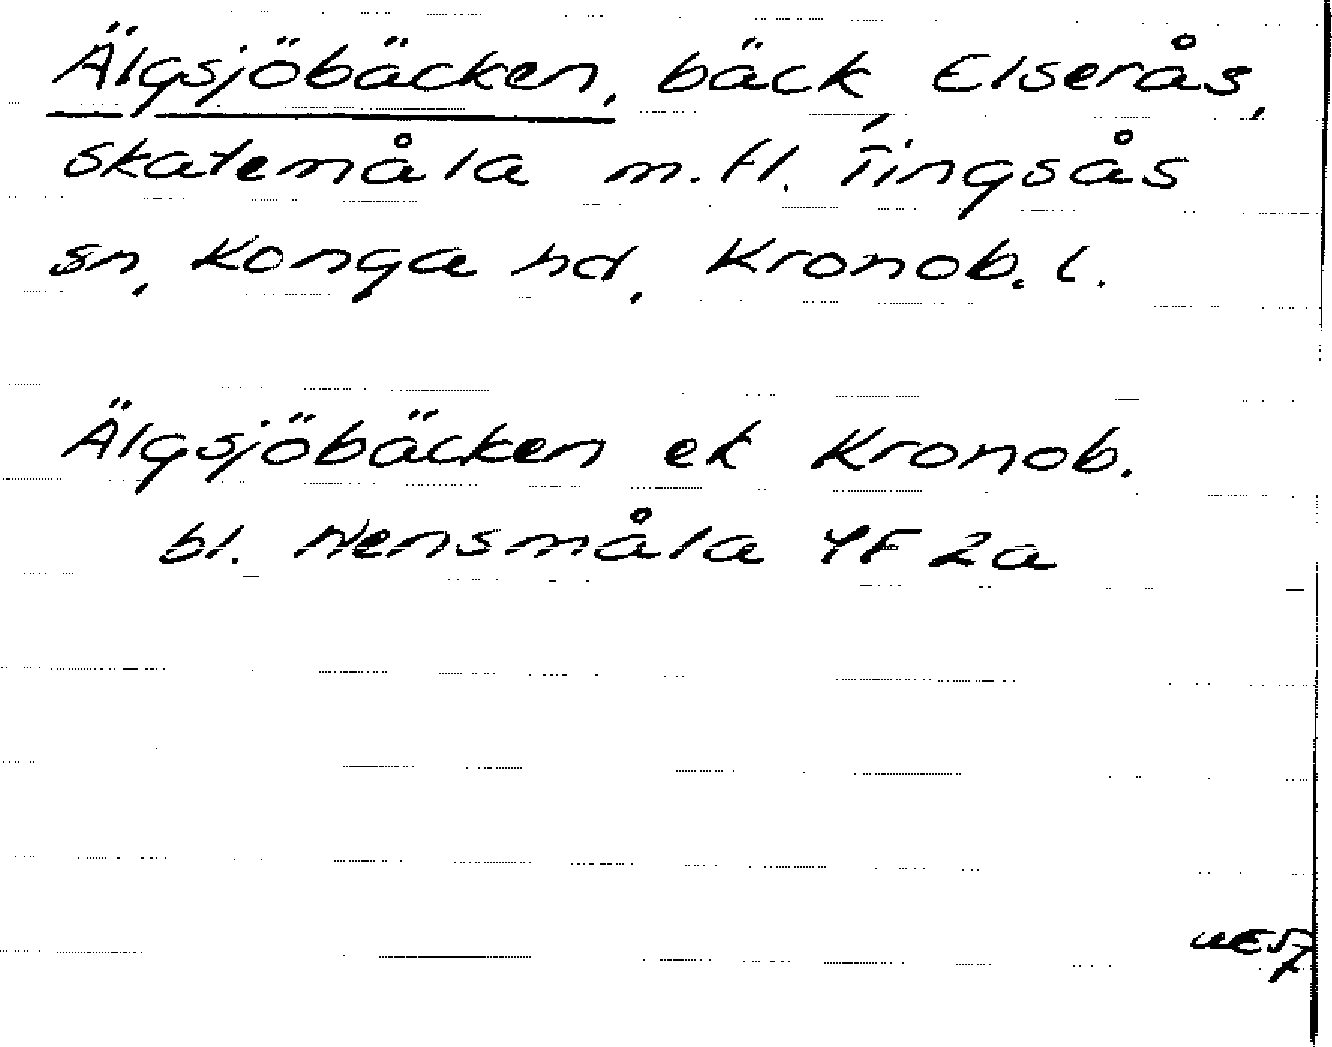 Älgsjöbäcken, bäck, Elserås,
Skatemåla m.fl. Tingsås
sn, Konga hd, Kronob. l.
Älgsjöbäcken ek Kronob.
bl. Nensmåla 4F 2a